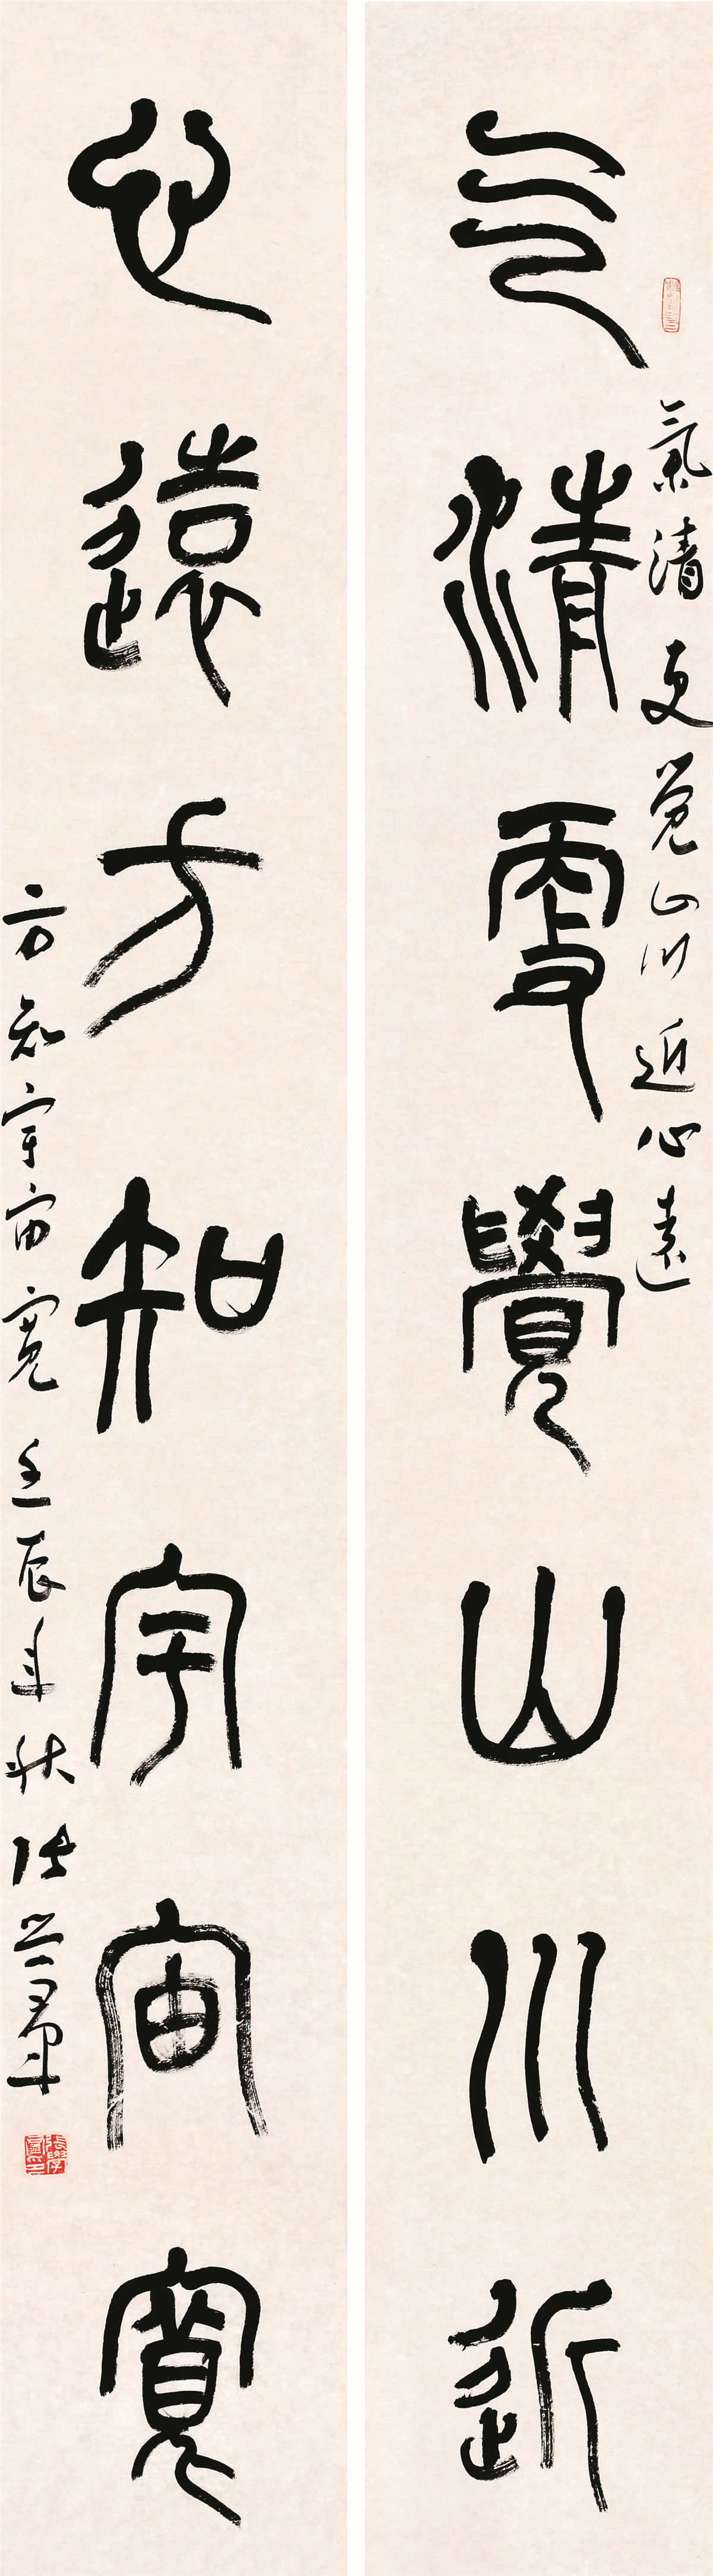 气清更覺山川近
氣清更觉山川近心遠
心遠方知宇宙寬
方知宇宙寬壬辰年秋张学群